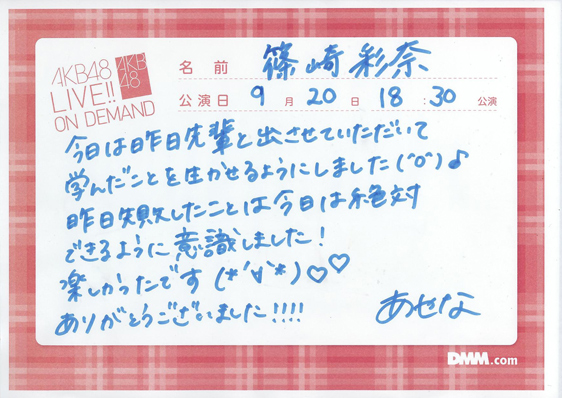 AKB48
LIVE!!
ON DEMAND
AKB
48
名前 篠崎彩奈
公演日 9月20日 18:30公演
今日は昨日先輩と出させていただいて
学んだことを生かせるようにしました(^o^)♪
昨日失敗したことは今日は絶対
できるように意識しました!
楽しかったです (*'∀'*)♡♡
ありがとうございました!!!!
あせな
DMM.com